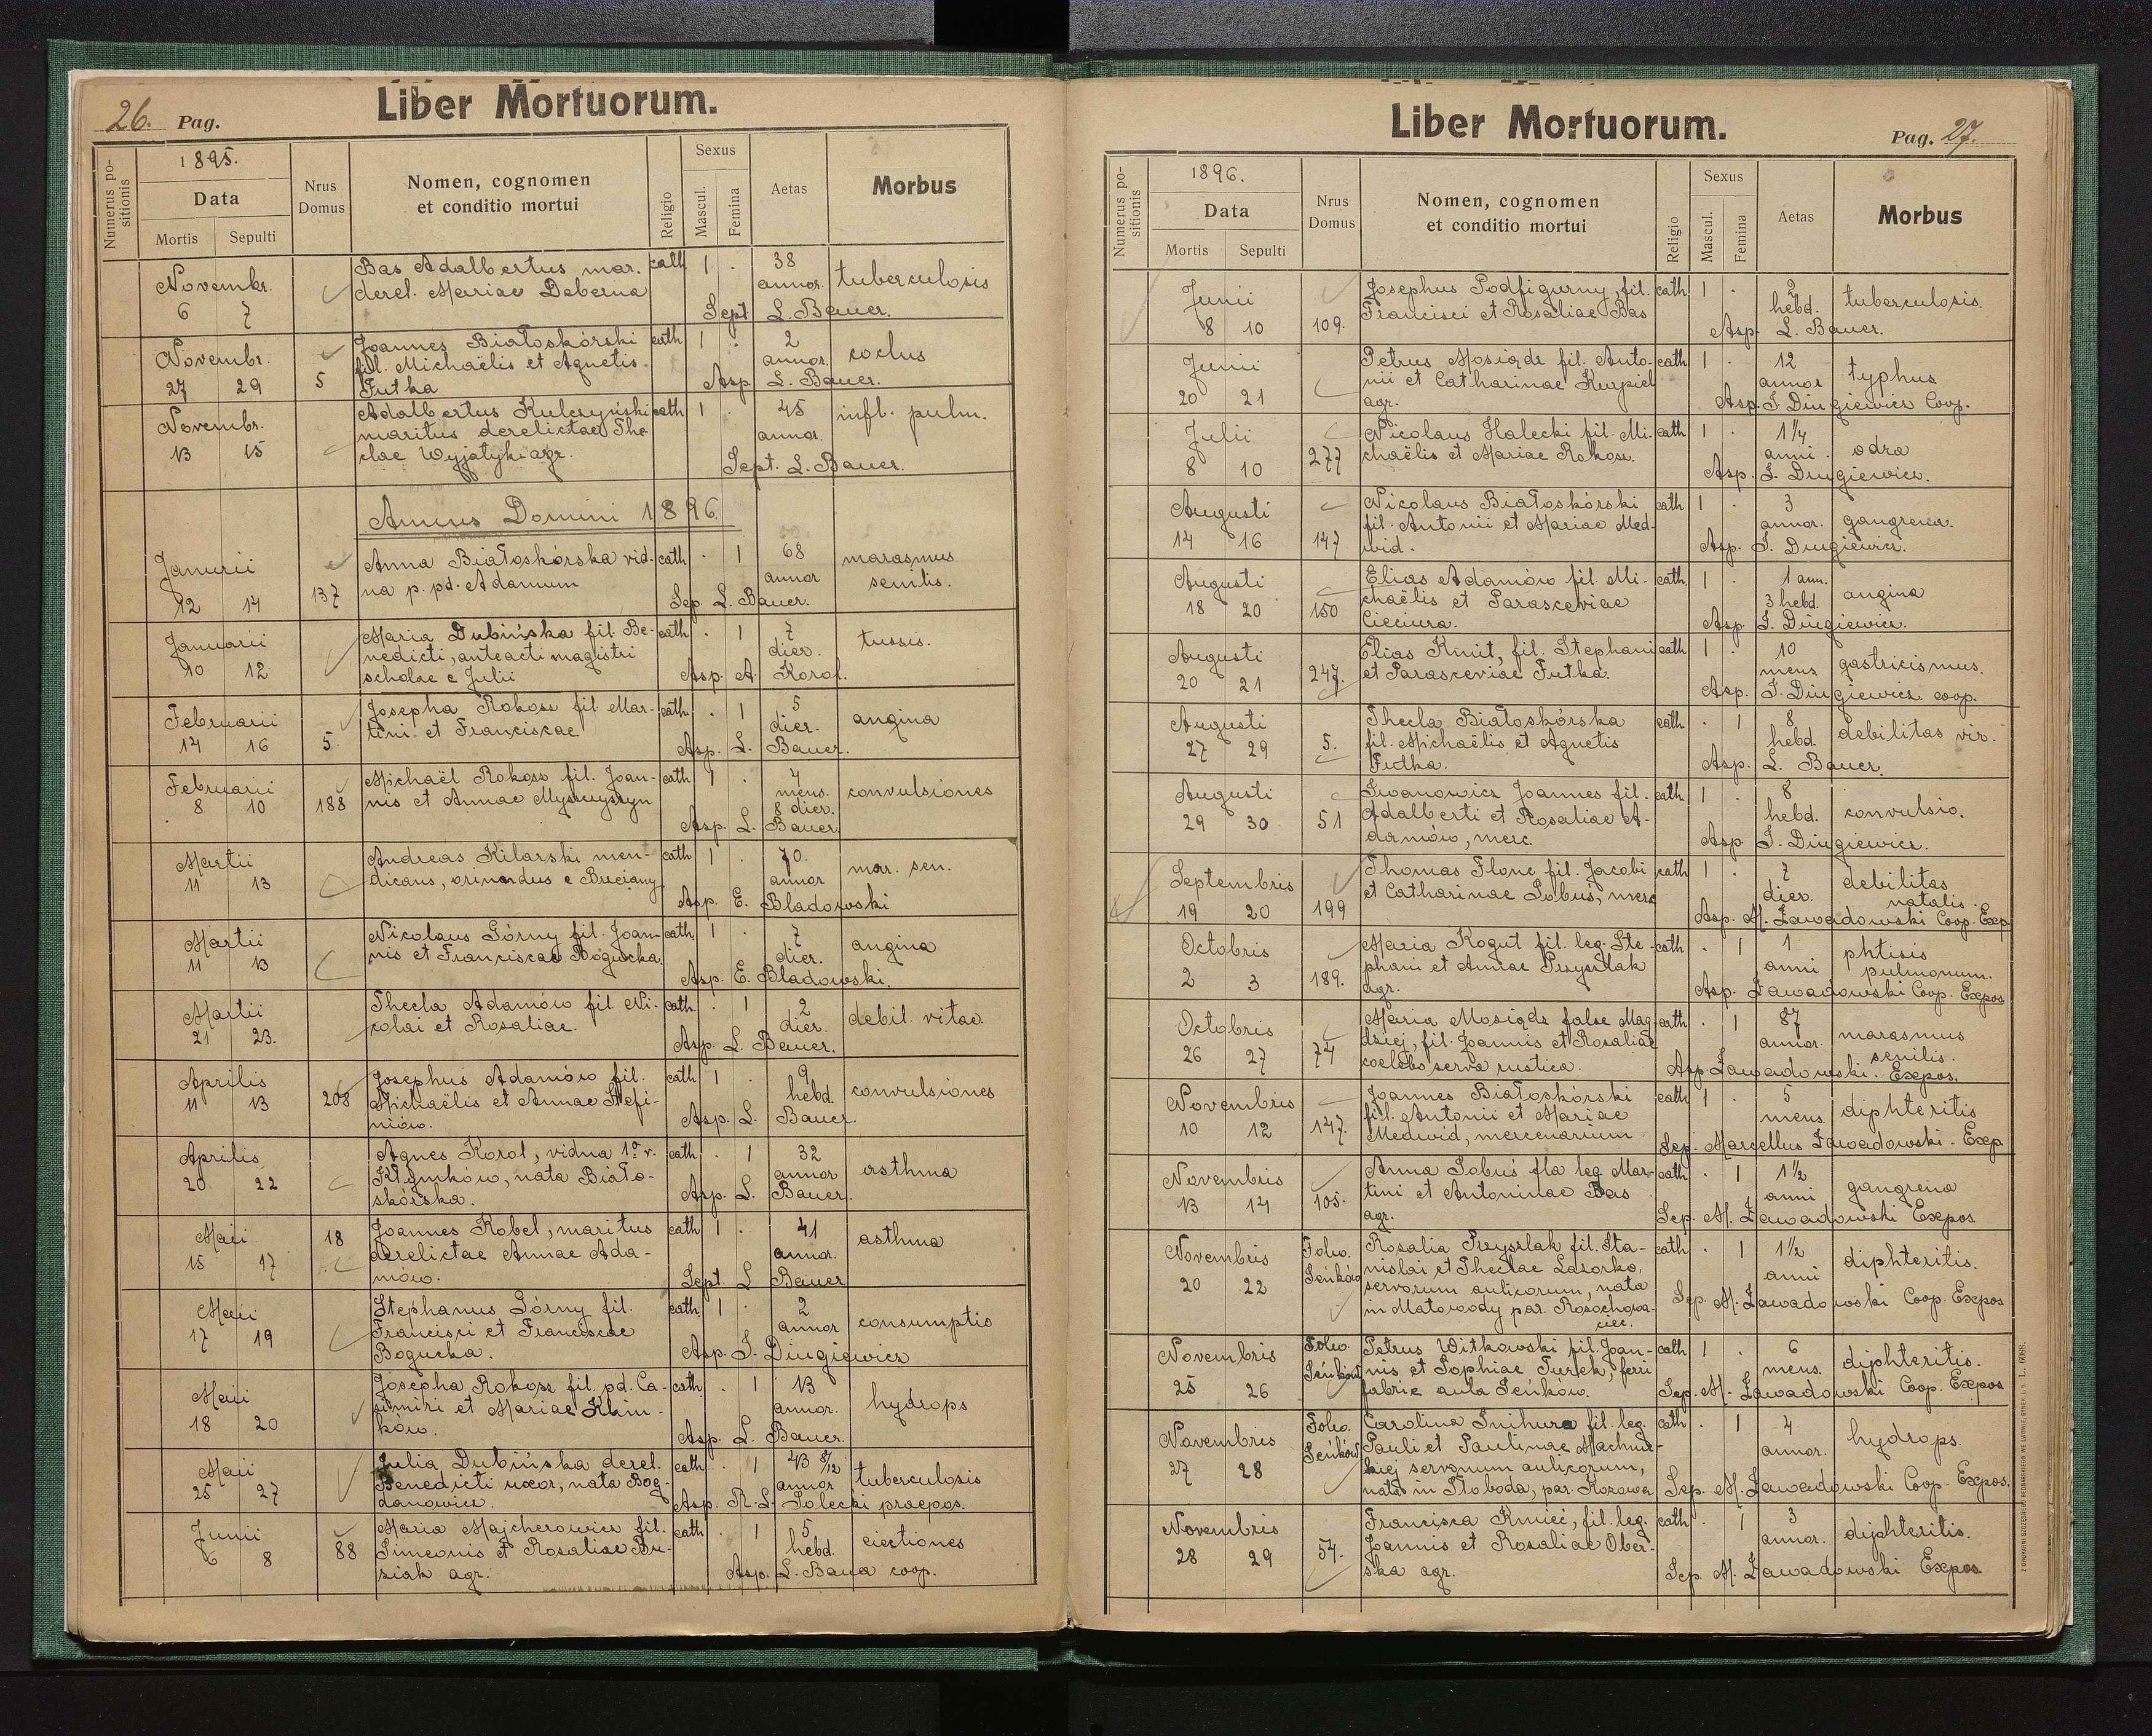 26. Pag.
Liber Mortuorum.
Numerus positionis
1895.
Data
Mortis Sepulti
Nrus Domus
Nomen, cognomen
et conditio mortui
Religio
Sexus
Mascul. Femina
Aetas
Morbus
Novembr. Bas Adalbertus, mar. cath 1 . 38 tuberculosis
derel. Mariae Deberna annor.
6 7 Sept L. Bauer.
Novembr. Joannes Białoskórski cath 1 . 2 coclus
fil. Michaëlis et Agnetis annor.
27 29 5 Futka Asp. L. Bauer.
Novembr. Adalbertus Kulczyński cath 1 . 45 infl. pulm.
maritus derelictae The- annor.
13 15 clae Wyjatyk agr. Sept. L. Bauer.
Annus Domini 1896.
Januarii Anna Białoskórska vid- cath . 1 68 marasmus
na p. pd. Adamum annor senilis.
12 14 137 Sep. L. Bauer.
Januarii Maria Dubińska fil. Be- cath . 1 7 tussis.
nedicti, anteacti magistri dier.
10 12 scholae e Julii Asp. A. Korol.
Februarii Josepha Rokosz fil. Mar- cath . 1 5 angina
tini et Franciscae dier.
14 16 5. Asp. L. Bauer.
Februarii Michaël Rokosz fil. Joan- cath 1 . 4 convulsiones
nis et Annae Myszczyszyn mens.
8 10 188 8 dier.
Asp. L. Bauer.
Martii Andreas Kilarski men- cath 1 . 70. mar. sen.
11 13 dicans, oriundus e Brzeciany annor
Asp. E. Bladowski
Martii Nicolaus Górny fil. Joan- cath. 1 . 7 angina
11 13 nis et Franciscae Bogucka. dier.
Asp. E. Bladowski.
Martii Thecla Adamów fil. Ni- cath. . 1 2 debil. vitae.
21 23. colai et Rosaliae. dier.
Asp. L. Bauer.
Aprilis Josephus Adamów fil. cath 1 . 9 convulsiones
11 13 208 Michaëlis et Annae Stefi- hebd.
niów. Asp. L. Bauer.
Aprilis Agnes Korol, vidua 1º v. cath . 1 32 asthma
20 22 Kłymków, nata Biało- annor
skórska. Asp. L. Bauer.
Maii 18 Joannes Kobel, maritus cath 1 . 41 asthma
15 17 derelictae Annae Ada- annor.
mów. Sept. L Bauer
Maii Stephanus Górny fil. cath 1 . 2 consumptio
17 19 Francisci et Franciscae annor
Bogucka. Asp. I. Dingiewicz
Maii Josepha Rokosz fil. pd. Ca- cath . 1 13 hydrops
18 20 simiri et Mariae Klim- annor.
ków. Asp. L. Bauer.
Maii Julia Dubińska derel. cath . 1 43 8/12 tuberculosis
25 27 Benedicti uxor, nata Bog- annor
danowicz. Asp. R. L. Solecki praepos.
Junii Maria Majcherowicz fil. cath . 1 5 eiectiones
6 8 88 Simeonis et Rosaliae Bu- hebd.
ziak agr. Asp. L. Baua coop.
Liber Mortuorum.
Pag. 27.
Numerus positionis
1896.
Data
Mortis Sepulti
Nrus Domus
Nomen, cognomen
et conditio mortui
Religio
Sexus
Mascul. Femina
Aetas
Morbus
Junii Josephus Podfigurny, fil. cath 1 . 2 tuberculosis.
Francisci et Rosaliae Bas hebd.
8 10 109. Asp. L. Bauer.
Junii Petrus Mosiądz fil. Anto- cath 1 . 12 typhus
nii et Catharinae Kurpiel annor
20 21 agr. Asp. I. Dingiewicz Coop.
Julii Nicolaus Halecki fil. Mi- cath 1 . 1 1/4 odra
chaëlis et Mariae Rokosz. anni.
8 10 277 Asp. I. Dingiewicz.
Augusti Nicolaus Białoskórski cath 1 . 3 gangrena.
fil. Antonii et Mariae Med- annor.
14 16 147 wid. Asp. I. Dingiewicz.
Augusti Elias Adamów fil. Mi- cath. 1 . 1 ann. angina
18 20 150 chaëlis et Parasceviae 3 hebd.
Cieciura. Asp. I. Dingiewicz.
Augusti Elias Kmit, fil. Stephani cath 1 . 10 gastricismus.
20 21 247. et Parasceviae Futka. mens.
Asp. I. Dingiewicz coop.
Augusti Thecla Białoskórska cath . 1 8 debilitas vir.
27 29 5. fil. Michaëlis et Agnetis hebd.
Futka. Asp. L. Bauer.
Augusti Iwanowicz Joannes fil. cath 1 . 8 convulsio.
29 30 51 Adalberti et Rosaliae A- hebd.
damów, merc. Asp. I. Dingiewicz.
Septembris Thomas Flonc fil. Jacobi cath 1 . 7 debilitas
19 20 199 et Catharinae Sobuś, merc dier. natalis.
Asp. M. Zawadowski Coop. Exp.
Octobris Maria Kogut fil. leg. Ste- cath . 1 1 phtisis
phani et Annae Przyszlak anni pulmonum.
2 3 189. agr. Asp. Zawadowski Coop. Expos
Octobris Maria Mosiądz false Mag- cath . 1 87 marasmus
dziej, fil. Joannis et Rosaliae annor. senilis.
26 27 74 coelebs serva rustica. Asp. Zawadowski. Expos.
Novembris Joannes Białoskórski cath 1 . 5 diphteritis
fil. Antonii et Mariae mens.
10 12 147. Medwid, mercenarium Sep. Marcellus Zawadowski. Exp
Novembris Anna Sobuś fla leg. Mar- cath . 1 1 1/2 gangrena
13 14 105. tini et Antoninae Bas anni
agr. Sep. M. Zawadowski Expos
Novembris Folw. Rosalia Przyszlak fil. Sta- cath . 1 1 1/2 diphteritis.
20 22 Seńków nislai et Theclae Lazorko, anni
servorum aulicorum, nata
in Małowody par. Rosochowa- Sep. M. Zawadowski Coop. Expos
ciec.
Novembris Folw. Petrus Witkowski fil. Joan- cath 1 . 6 diphteritis.
Seńków nis et Sophiae Turek, ferri mens.
25 26 fabric aula Seńków. Sep. M. Zawadowski Coop. Expos
Novembris Folw. Carolina Snihura fil. leg. cath . 1 4 hydrops.
Seńków Pauli et Paulinae Machnic- annor.
27 28 kiej servorum aulicorum,
nata in Słoboda, par. Kozowa Sep. M. Zawadowski Coop. Expos.
Novembris Francisca Kmieć, fil. leg. cath . 1 3 diphteritis.
28 29 54. Joannis et Rosaliae Ober- annor.
ska agr. Sep. M. Zawadowski Expos